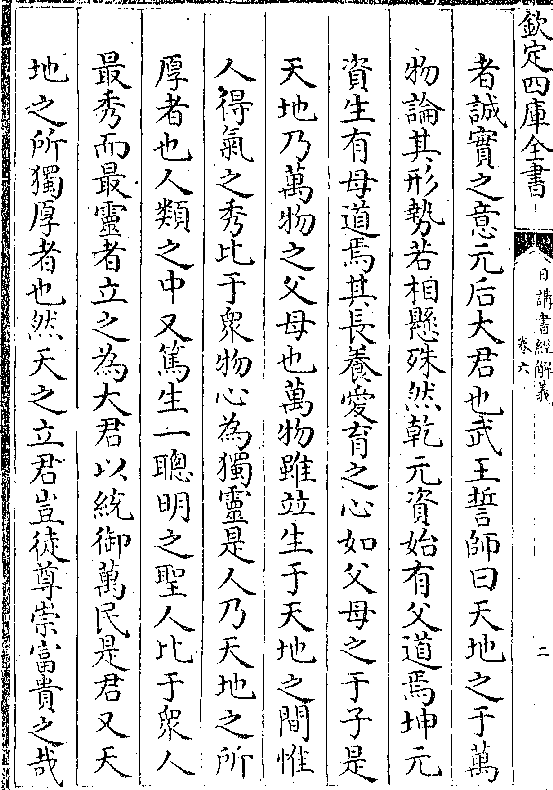 欽定四庫全書
日講書經解義
卷六
二
者誠實之意元后大君也武王誓師曰天地之于萬
物論其形勢若相懸殊然乾元資始有父道焉坤元
資生有母道焉其長養愛育之心如父母之于子是
天地乃萬物之父母也萬物雖竝生于天地之間惟
人得氣之秀比于衆物心為獨靈是人乃天地之所
厚者也人類之中又篤生一聰明之聖人比于衆人
最秀而最靈者立之為大君以統御萬民是君又天
地之所獨厚者也然天之立君豈徒尊崇富貴之哉